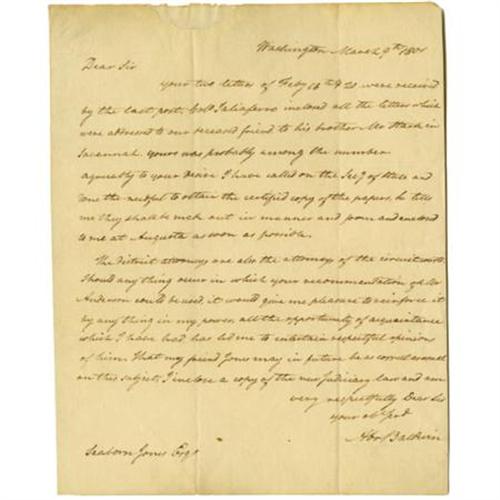 Washington March 9th 1801
Dear Sir
your two letters of Feby 16th & 20 were received
by the last post. Colo Taliaferro inclosed all the letters which
were addressed to our deceased friend to his brother Mr in
Savannah. yours was probably among the number
agreeably to your desire I have called on the Secy of State and
done the needful to obtain the certified copy of the papers, he tells
me they shall be made out in manner and form and enclosed
to me at Augusta as soon as possible.
The district attorneys are also the attorneys of the circuit courts.
Should any thing occur in which your recommendation of Mr
Anderson could be used, it would give me pleasure to reinforce it
by any thing in my power, all the opportunity of acquaintance
which I have had has led me to entertain respectful opinion
of him. That my friend Jones may in future be as correct as usual
on this subject, I inclose a copy of the new Judiciary law and am
very respectfully Dear Sir
your obt Servt
Abr Baldwin
Seaborn Jones Esqr